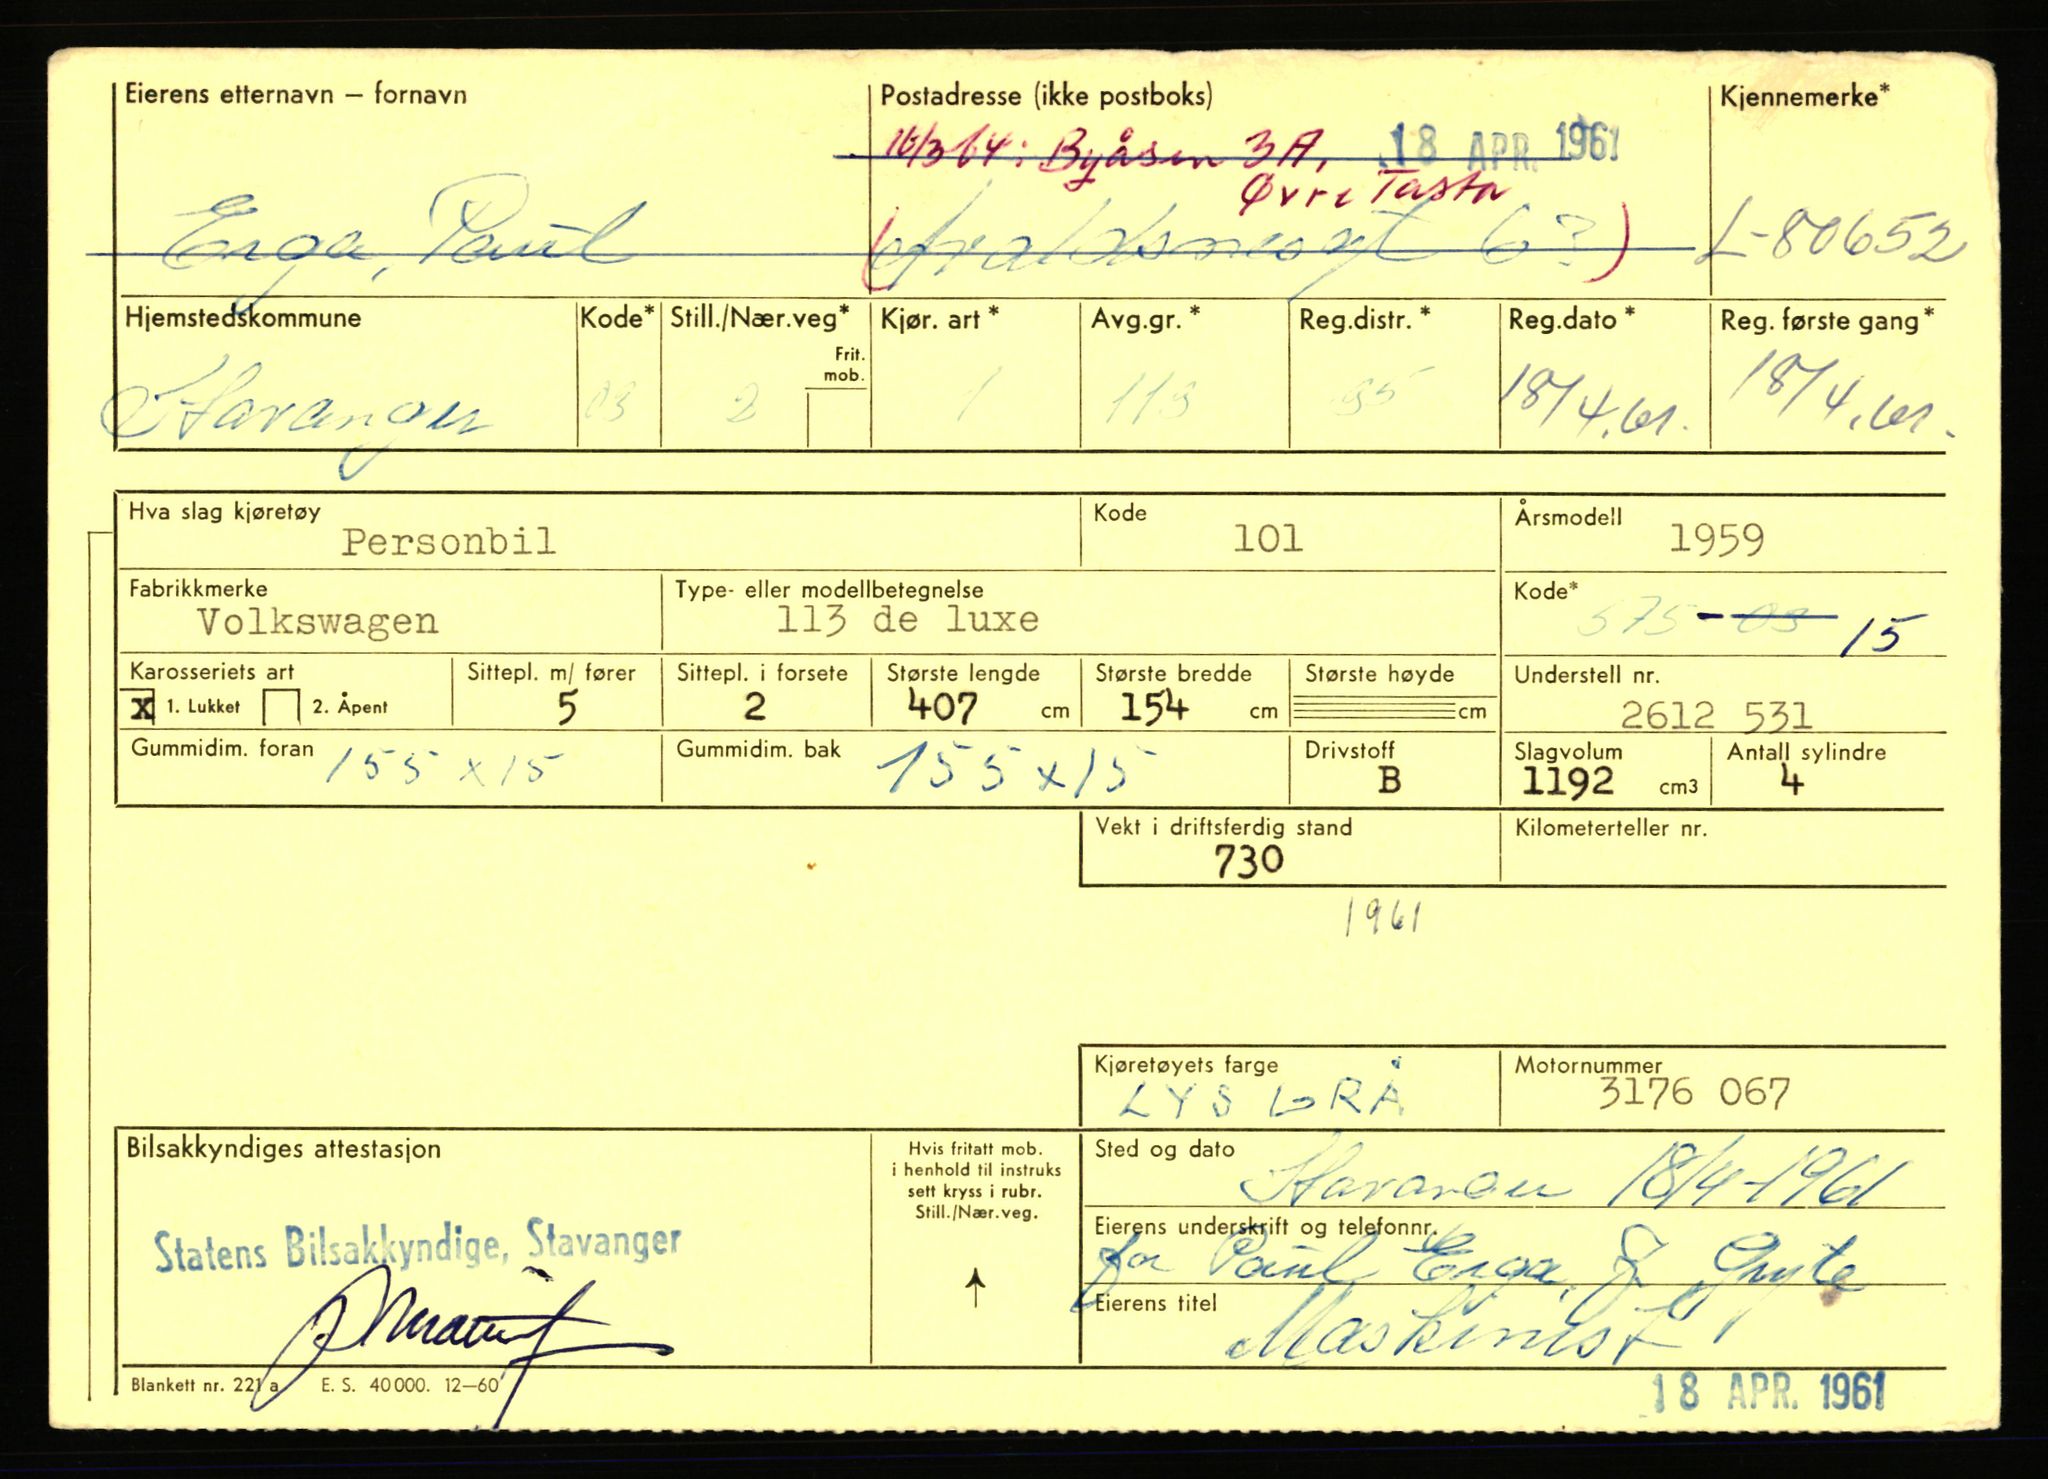 Eierens etternavn – fornavn
Postadresse (ikke postboks)
Kjennemerke*
16/3 64: Byåsen 3A,
18 APR. 1961
Øvre Tasta
Erga, Paul
L-80652
Hjemstedskommune
Kode*
Still./Nær.veg*
Frit. mob.
Kjør. art *
Avg.gr. *
Reg.distr. *
Reg.dato *
Reg. første gang*
Stavanger
03
2
1
113
95
18/4.61.
18/4.61.
Hva slag kjøretøy
Personbil
Kode
101
Årsmodell
1959
Fabrikkmerke
Volkswagen
Type- eller modellbetegnelse
113 de luxe
Kode*
575-03 15
Karosseriets art
x 1. Lukket 2. Åpent
Sittepl. m/ fører
5
Sittepl. i forsete
2
Største lengde
407 cm
Største bredde
154 cm
Største høyde
cm
Understell nr.
2612 531
Gummidim. foran
155 x 15
Gummidim. bak
155 x 15
Drivstoff
B
Slagvolum
1192 cm3
Antall sylindre
4
Vekt i driftsferdig stand
730
Kilometerteller nr.
1961
Kjøretøyets farge
LYS GRÅ
Motornummer
3176 067
Bilsakkyndiges attestasjon
Statens Bilsakkyndige, Stavanger
Hvis fritatt mob.
i henhold til instruks
sett kryss i rubr.
Still./Nær.veg.
Sted og dato
Stavanger 18/4-1961
Eierens underskrift og telefonnr.
for Paul Erga,
Eierens titel
Maskinist
Blankett nr. 221 a E. S. 40 000. 12–60
18 APR. 1961